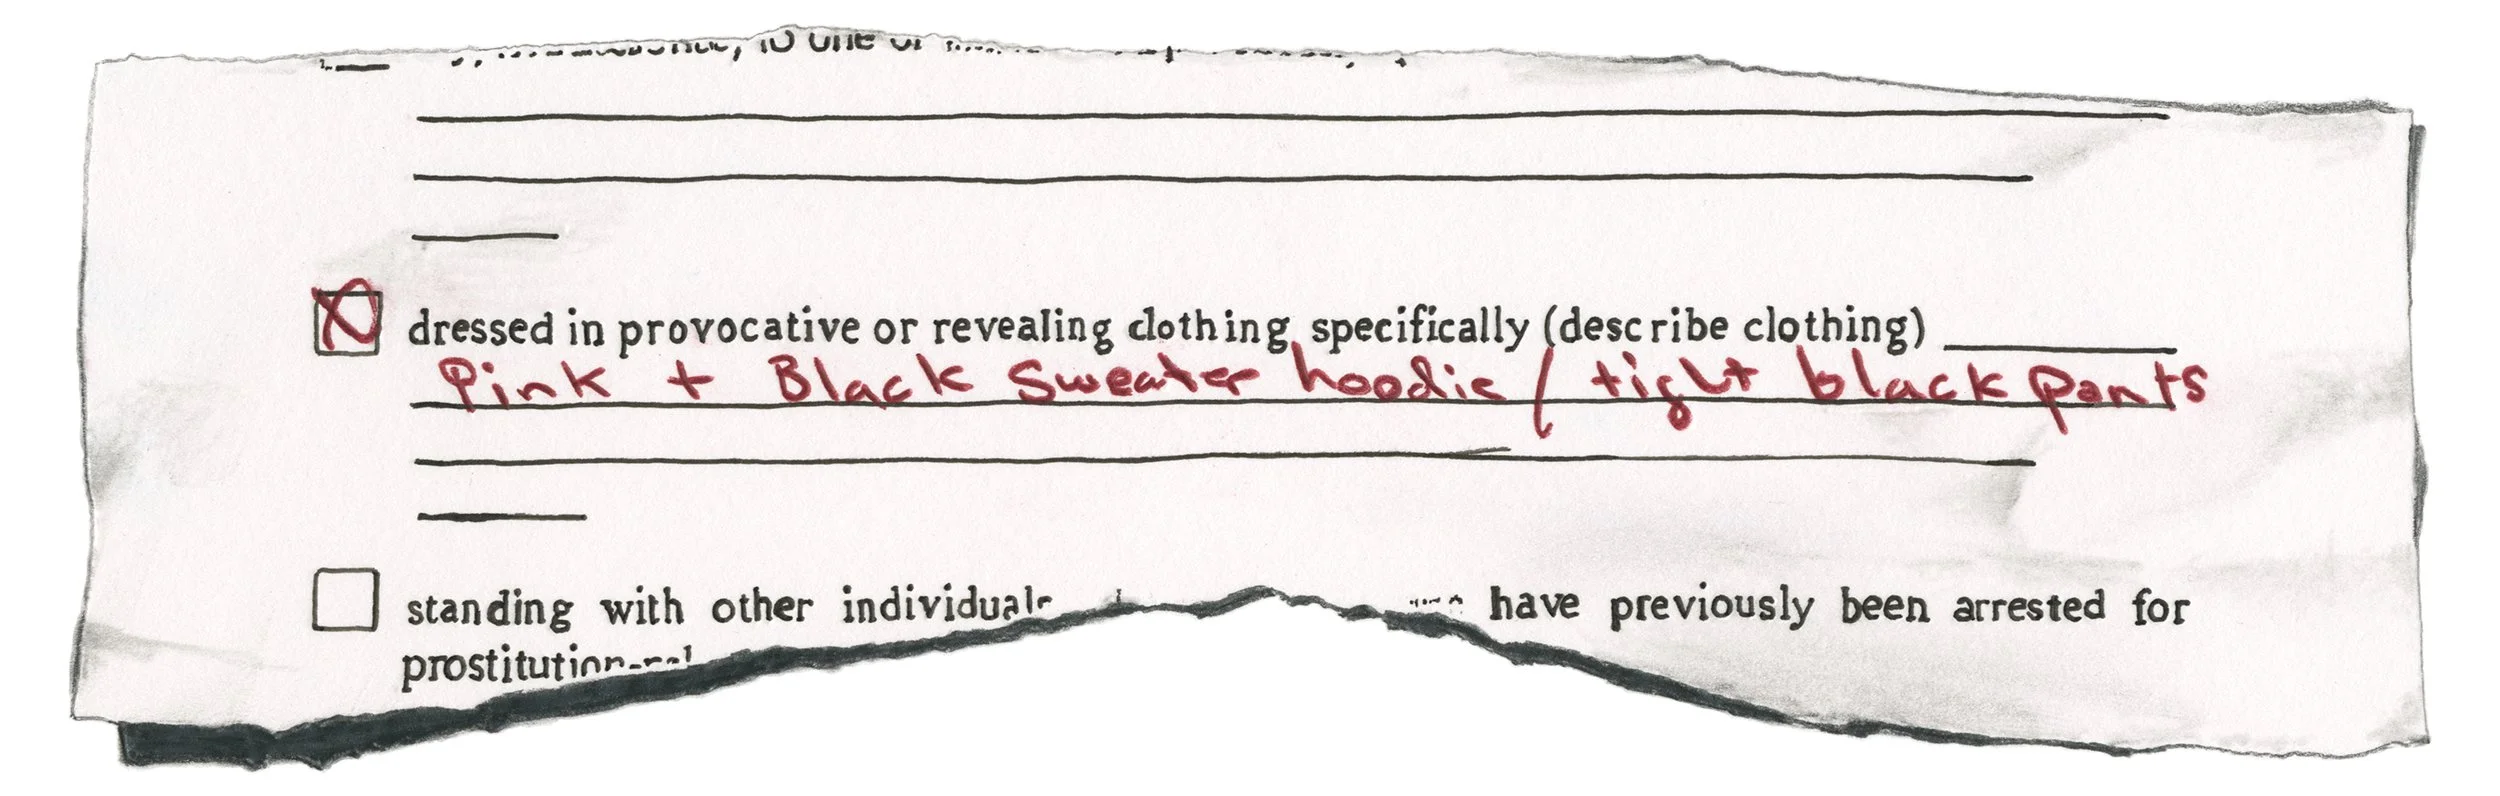 to one of
dressed in provocative or revealing clothing, specifically (describe clothing)
Pink + Black Sweater hoodie / tight black pants
standing with other individuals have previously been arrested for
prostitution